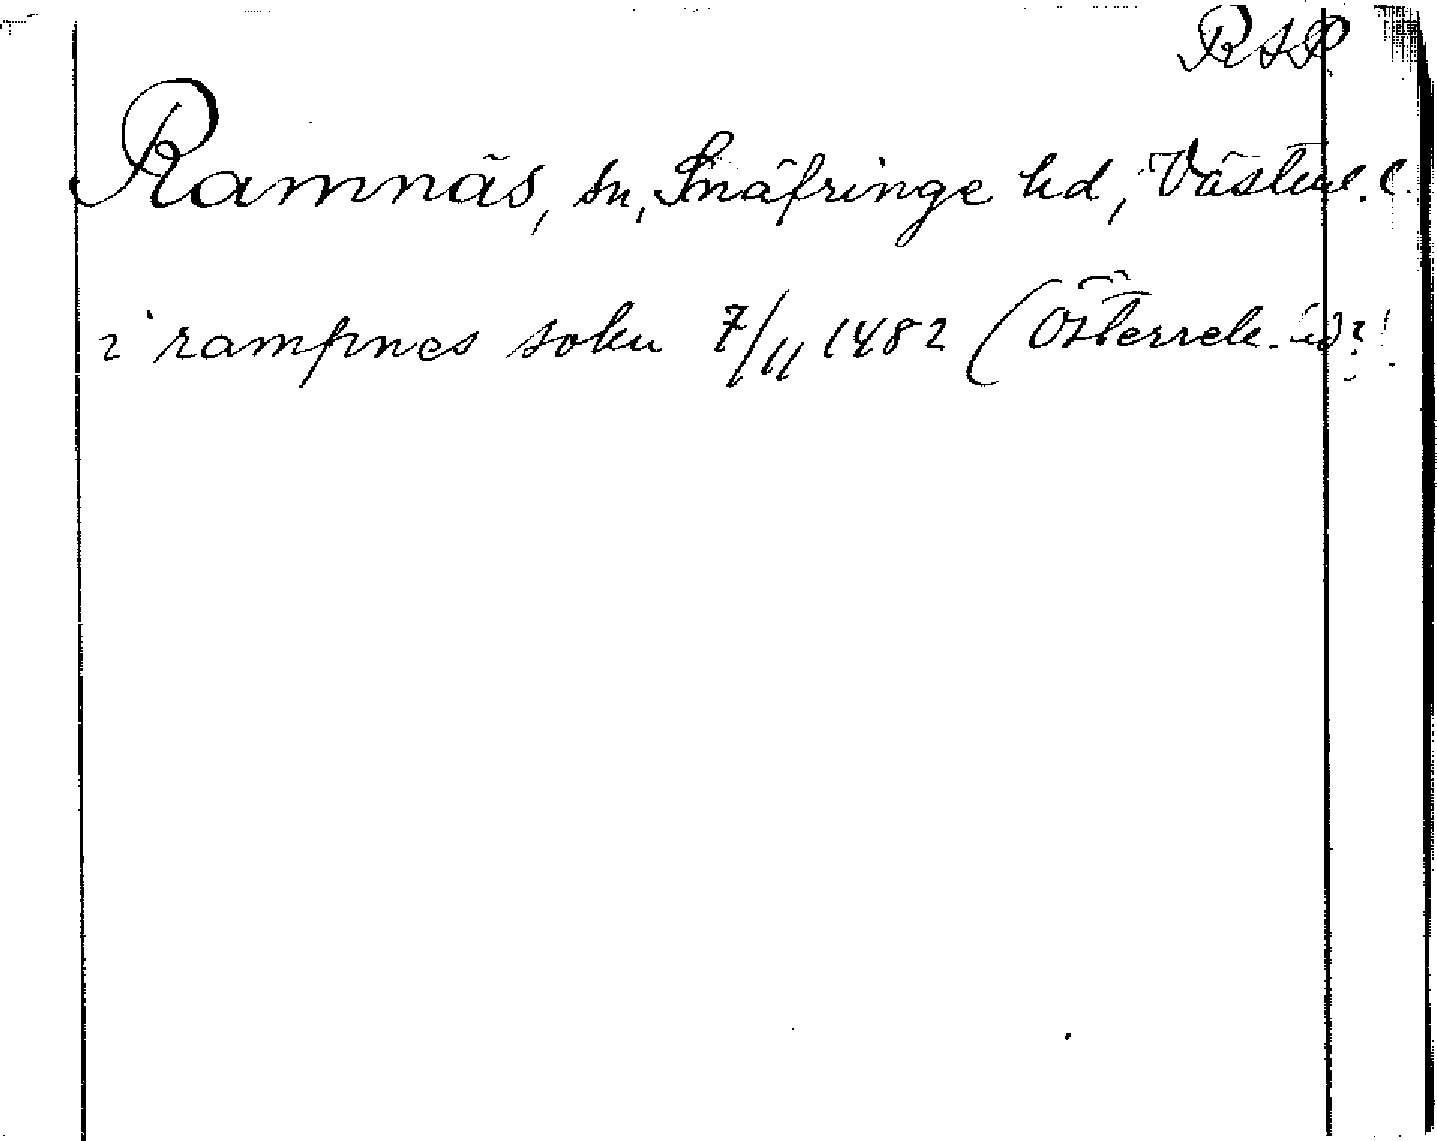 RAP
Ramnäs, sn, Snäfringe hd, Västml. l.
i rampnes sokn 7/11 1482 (Österrek.